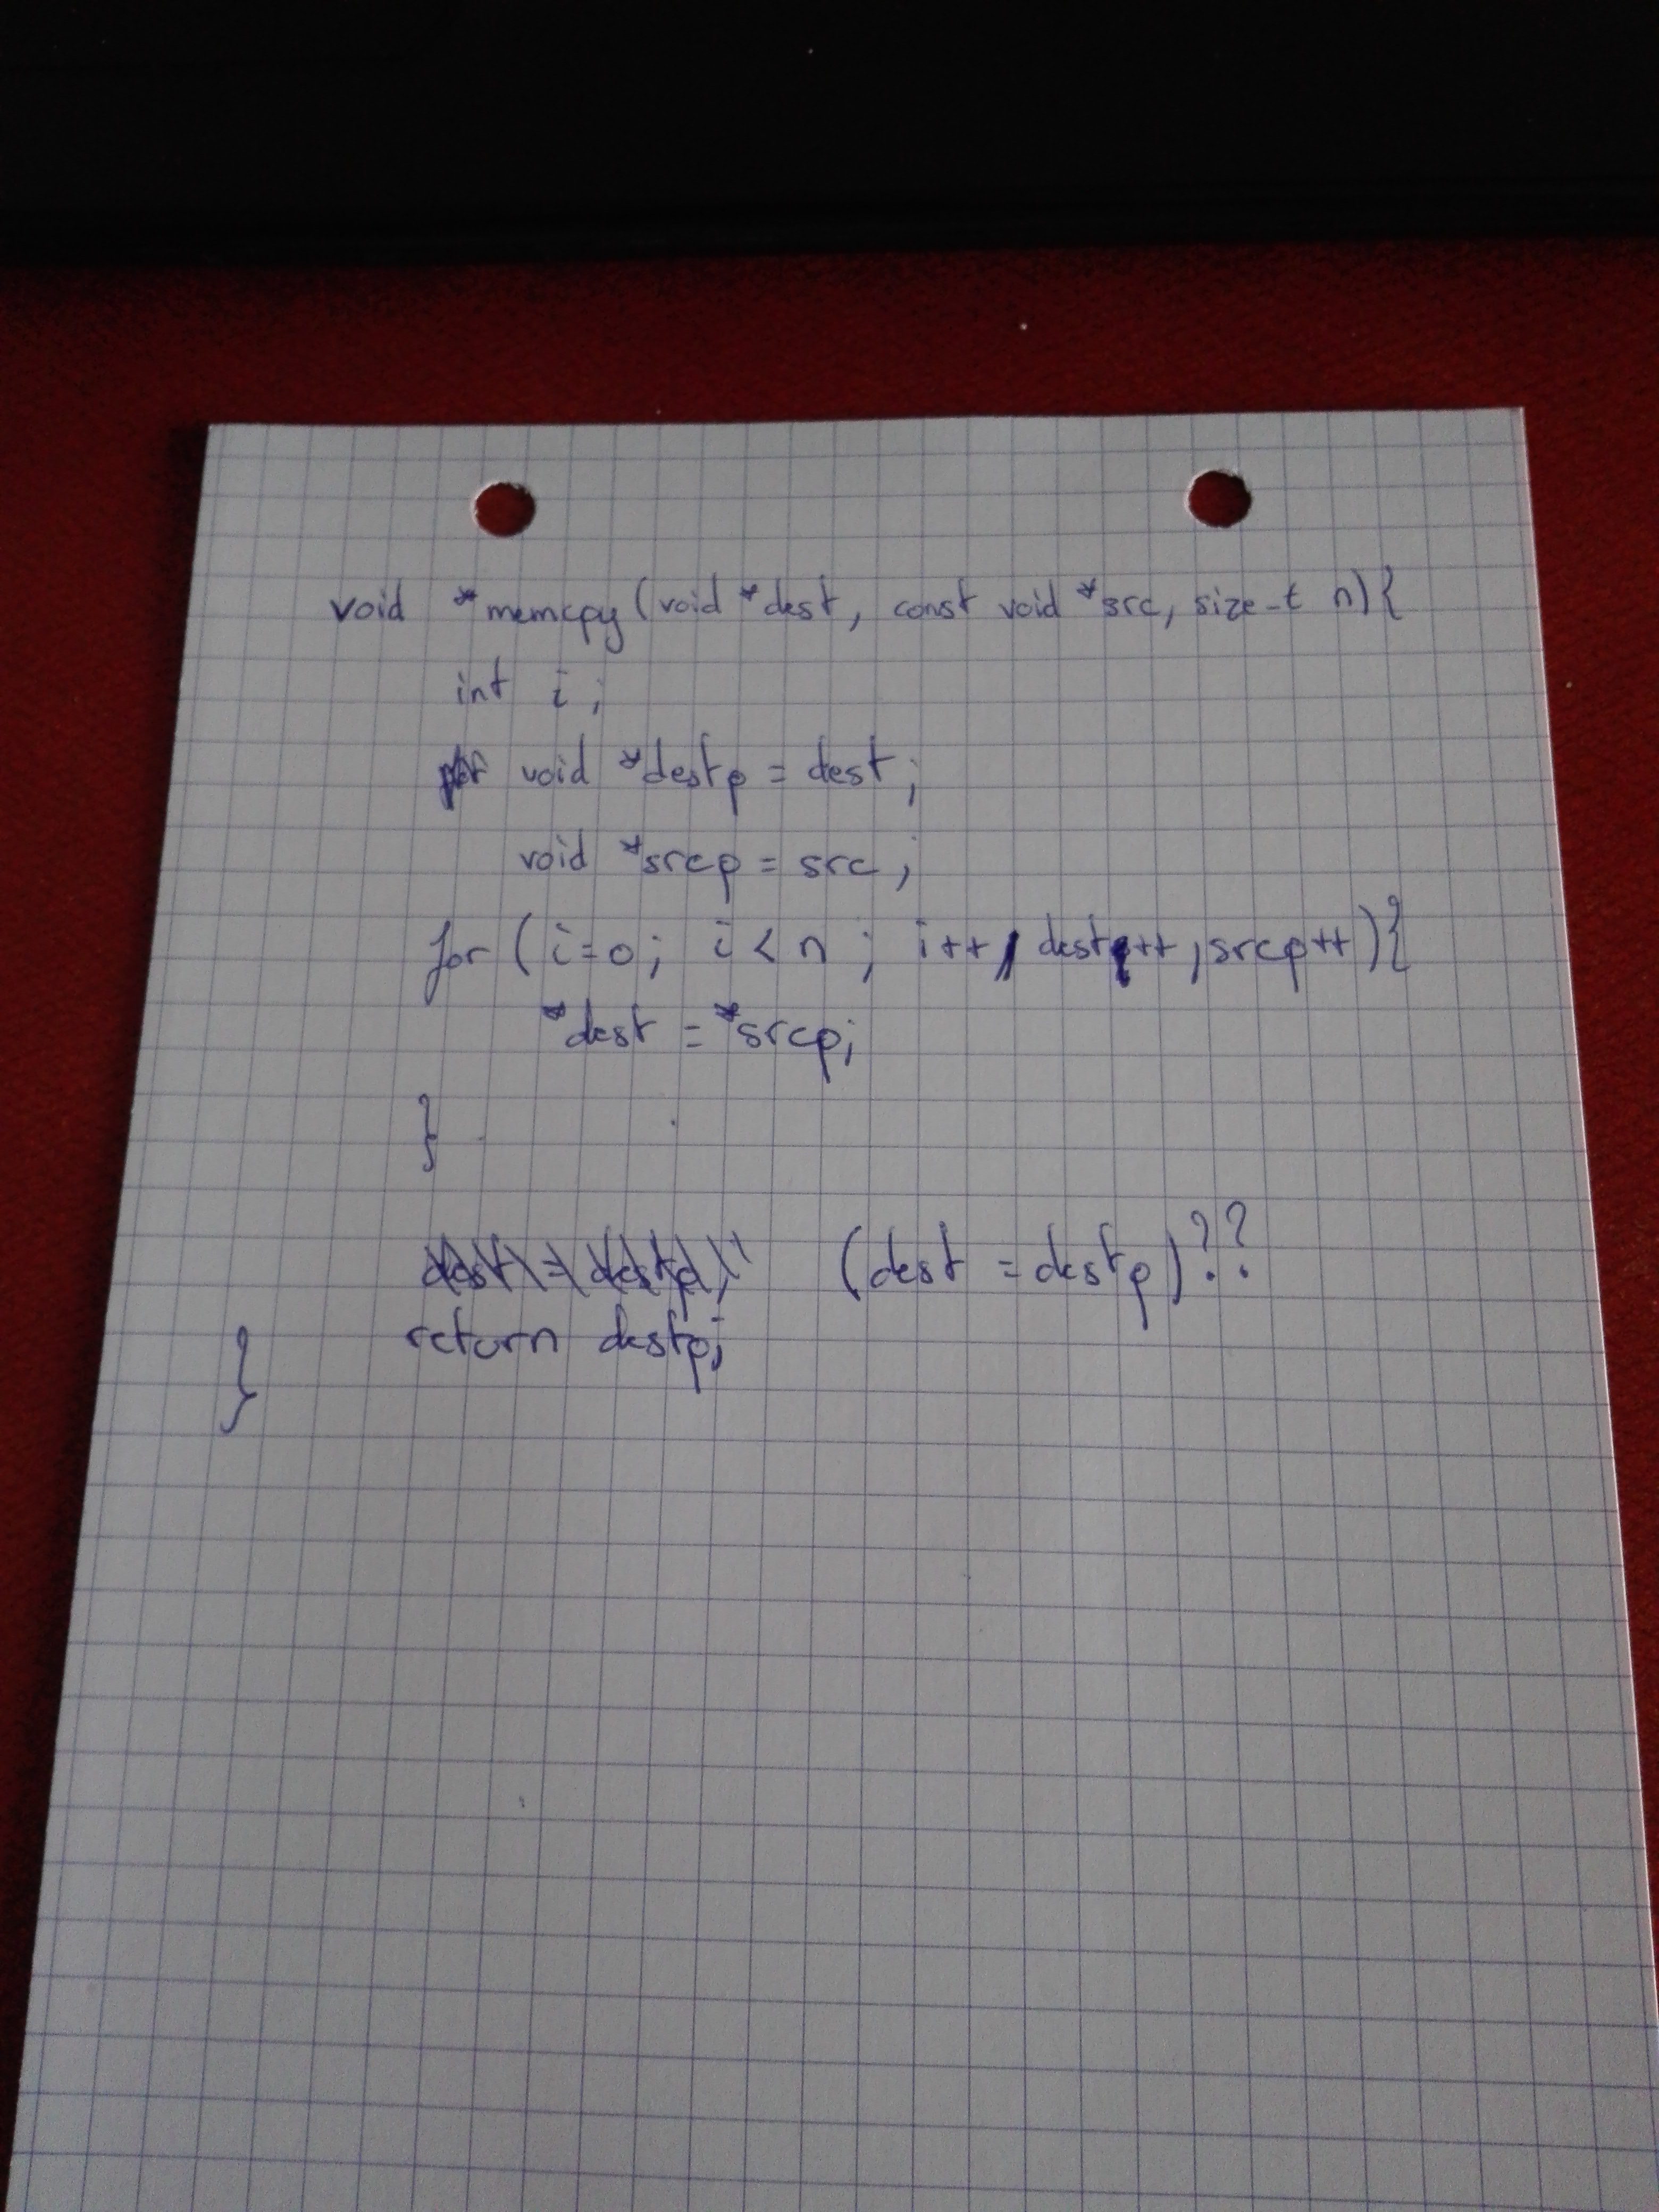 void *memcpy(void *dest, const void *src, size_t n){
int i;
void *destp = dest;
void *srcp = src;
for (i=0; i<n; i++, destp++, srcp++){
*dest = *srcp;
}
dest = destp; (dest = destp)??
return destp;
}